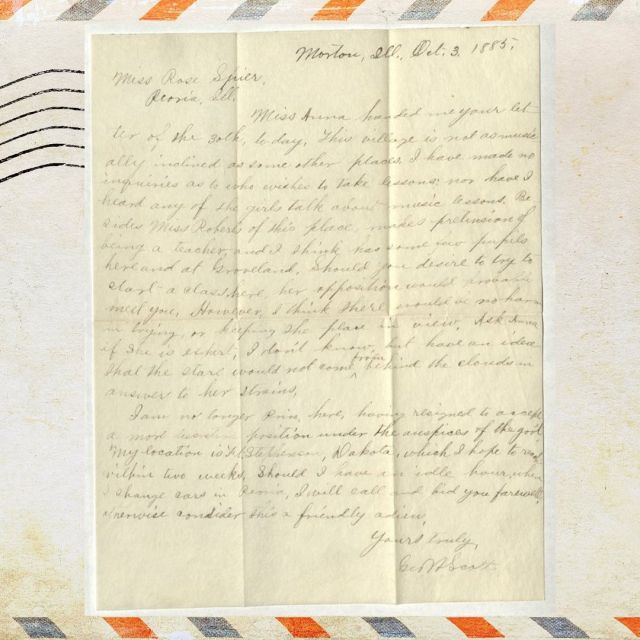 Morton, Ill., Oct. 3, 1885.
Miss Rose Spier,
Peoria, Ill.
Miss Anna handed me your let-
ter of the 30th, to day. This village is not as music-
ally inclined as some other places. I have made no
inquiries as to who wishes to take lessons; nor have I
heard any of the girls talk about music lessons. Be
sides Miss Roberts of this place, makes pretension of
being a teacher and I think has some few pupils
here and at Groveland. Should you desire to try to
start a class here, her opposition would
meet you. However, I think there would be no harm
in trying, or keeping the place in view. Ask Anna
if she is either, I don't know, but have an idea
that the stars would not come from behind the clouds in
answer to her strains.
I am no longer Prin. here, having resigned to accept
a more position under the auspices of the gov't
My location is Ft. Stephenson, Dakota, which I hope to reach
within two weeks. Should I have an idle hour, when
I change cars in Peoria, I will call and bid you farewell,
otherwise consider this a friendly adieu.
Yours truly,